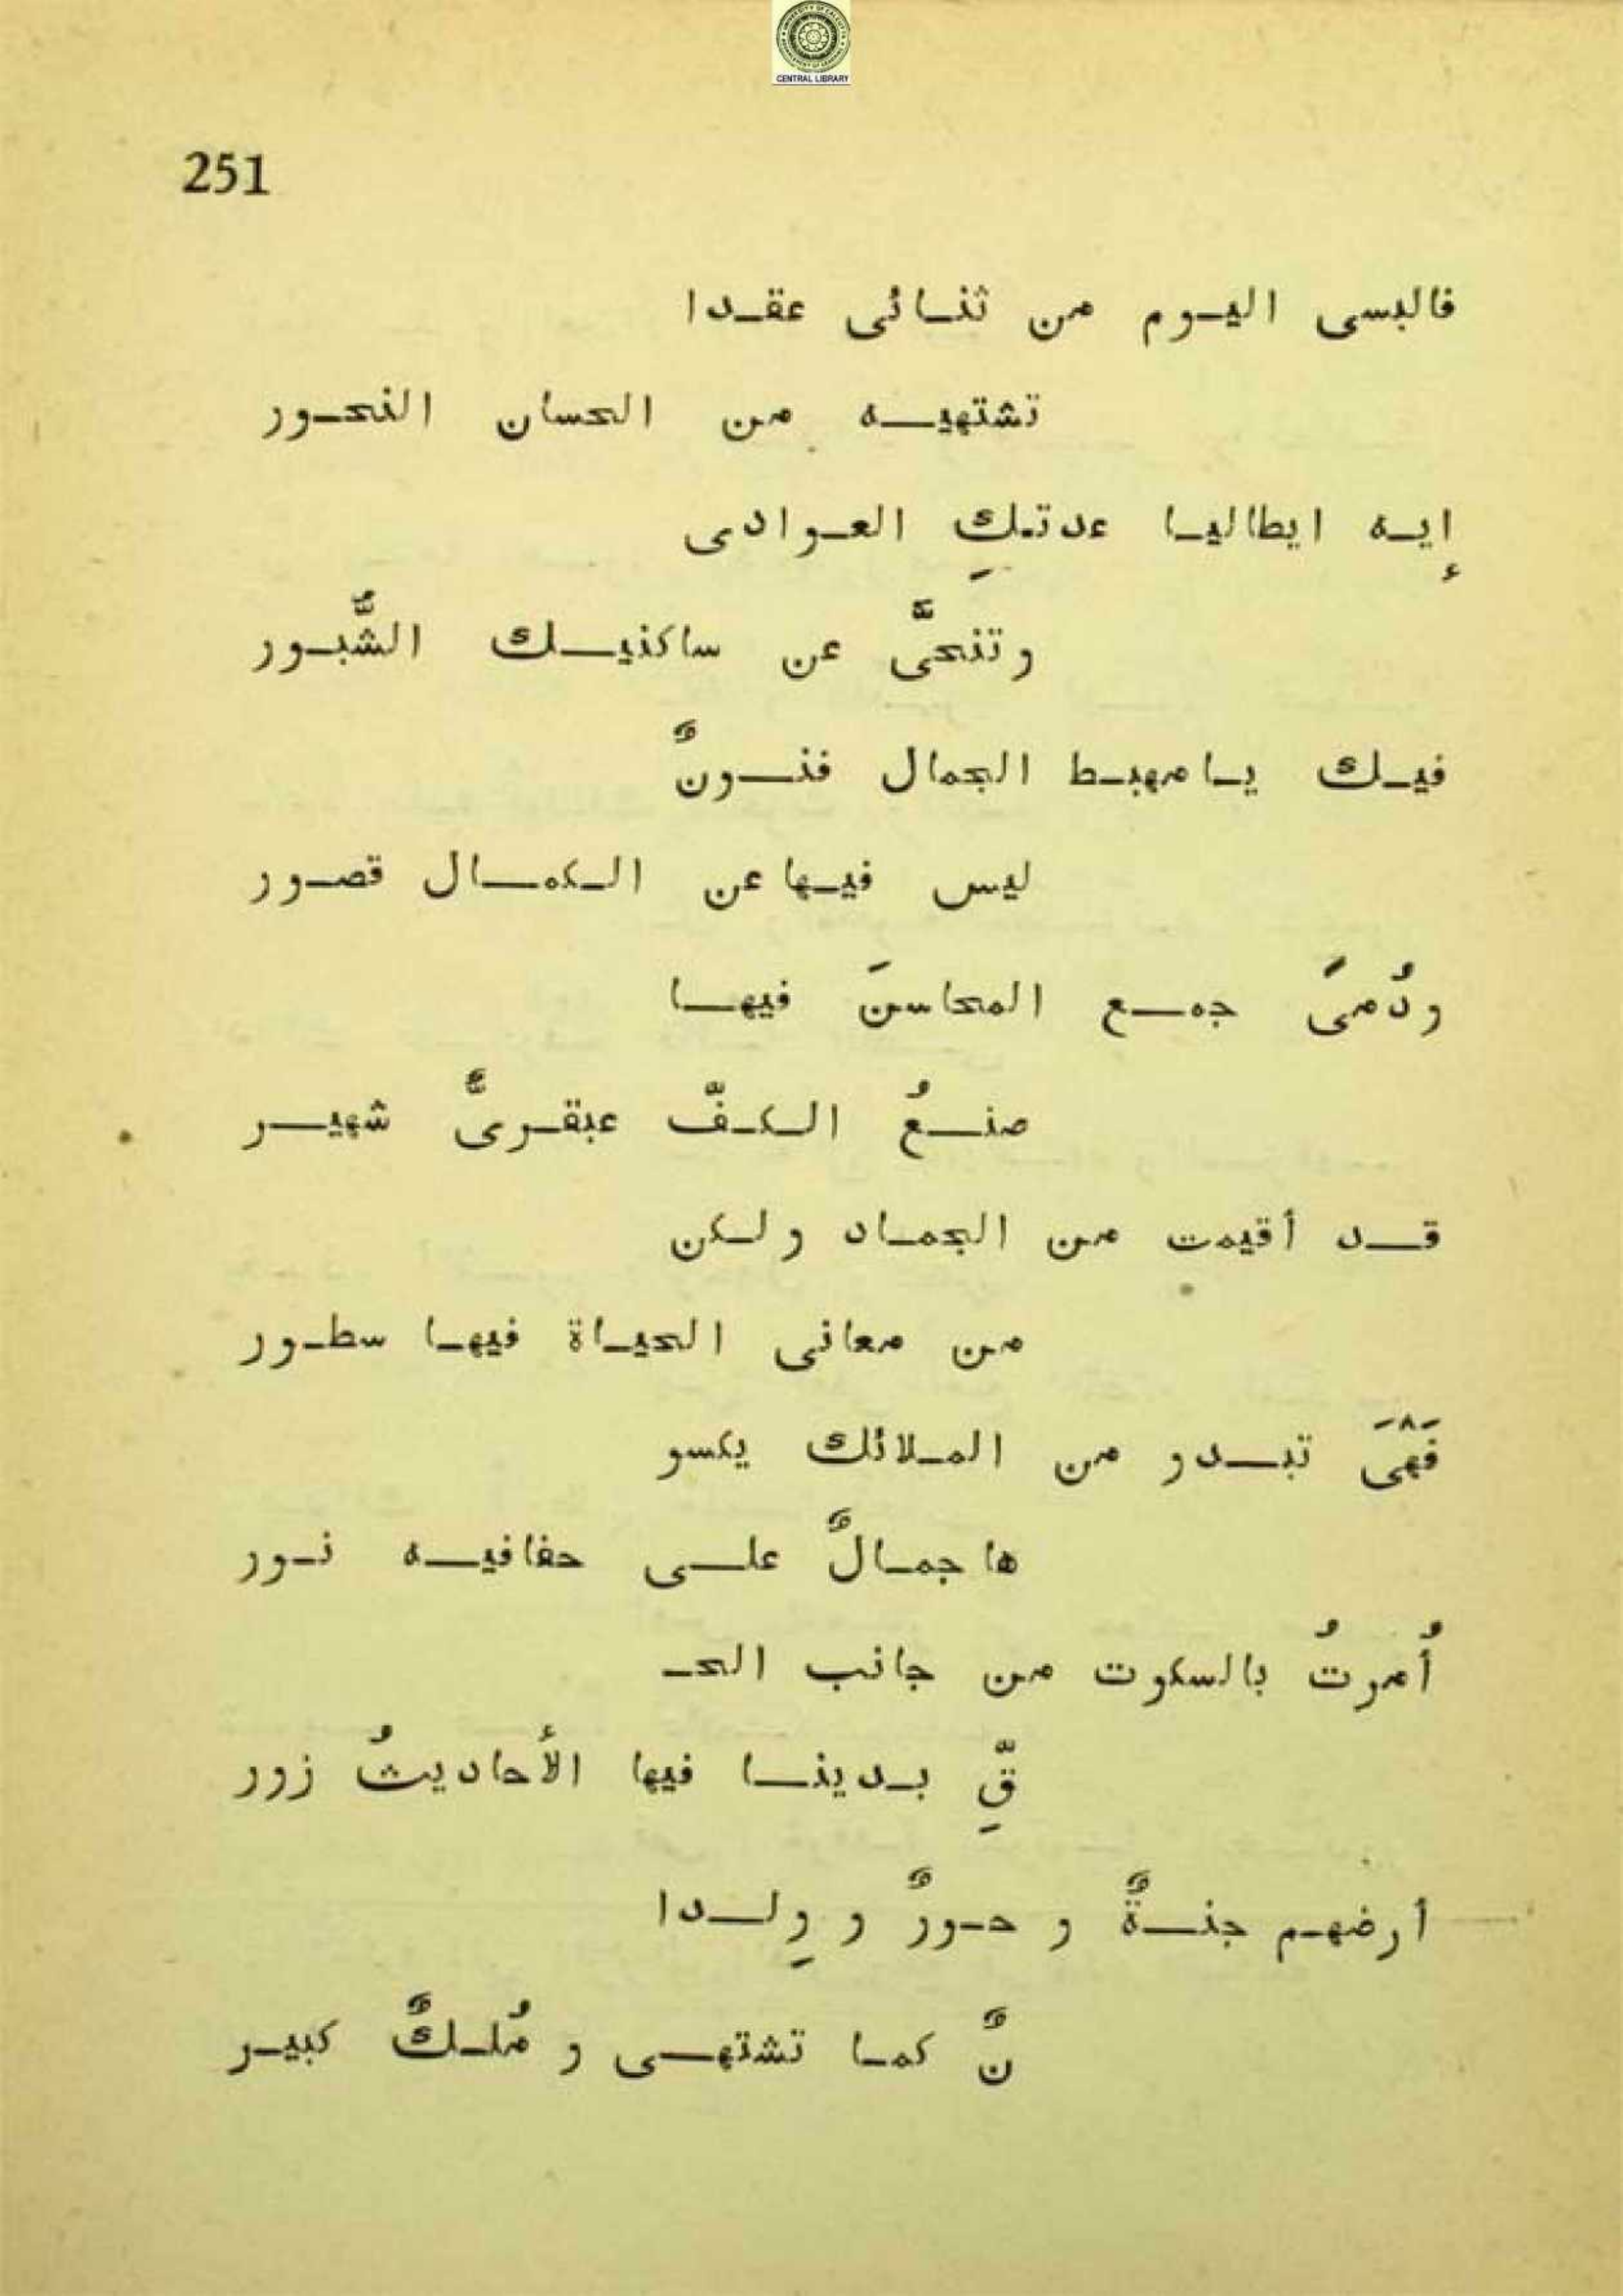 CENTRAL LIBRARY
251
فالبسى اليوم من ثنائى عقدا
تشتهيه من الحسان النحور
إيه ايطاليا عدتكِ العوادى
وتنحَّى عن ساكنيك الشُّبور
فيك يا مهبط الجمال فنونٌ
ليس فيها عن الكمال قصور
ودُمىً جمع المحاسنَ فيها
صنعُ الكفّ عبقرىٌّ شهير
قد أقيمت من الجماد ولكن
من معانى الحياة فيها سطور
فَهْىَ تبدو من الملائك يكسو
ها جمالٌ على حفافيه نور
أُمرتُ بالسكوت من جانب الحـ
قِّ بدينا فيها الأحاديثُ زور
أرضهم جنةٌ و حورٌ و وِلدا
نٌ كما تشتهى و مُلكٌ كبير